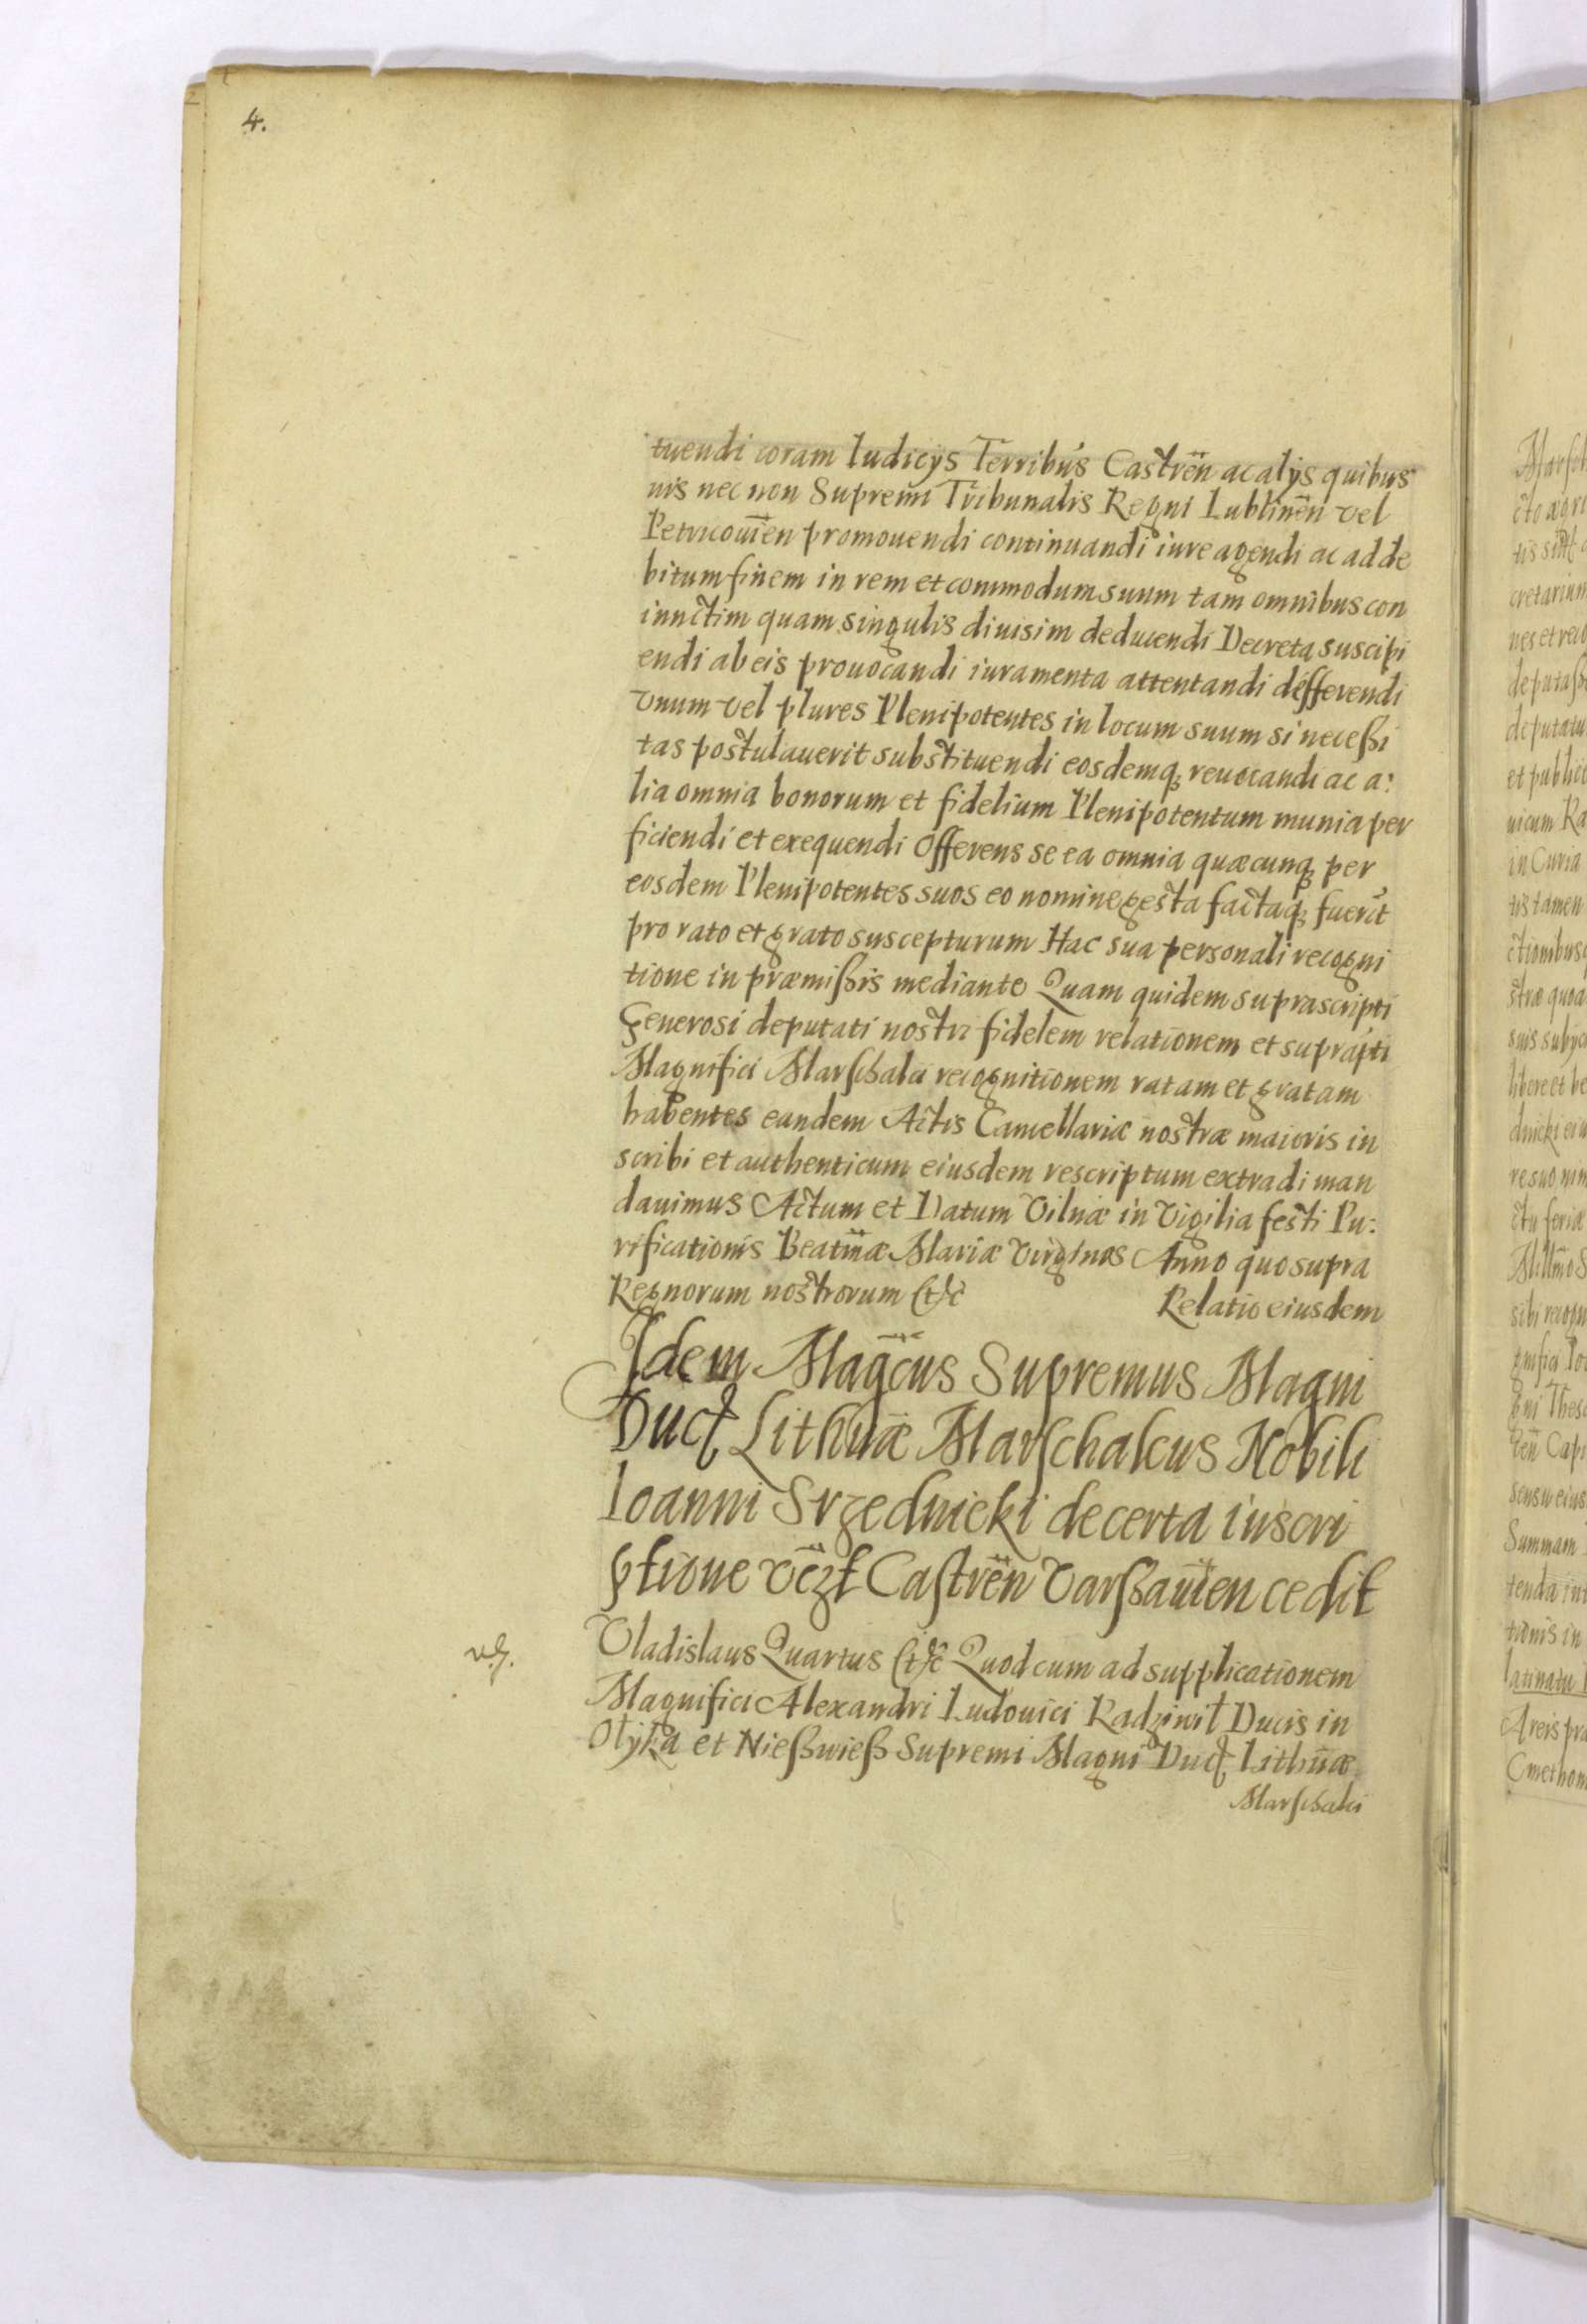 4.
tuendi coram Iudicÿs Terribus Castren̄ ac alÿs quibus
uis nec non Supremi Tribunalis Regni Lublinen̄ vel
Petricouien̄ promouendi continuandi iure agendi ac ad de
bitum finem in rem et commodum suum tam omnibus con
iunctim quam singulis diuisim deducendi Decreta suscipi
endi ab eis prouocandi iuramenta attentandi defferendi
vnum vel plures Plenipotentes in locum suum si necessi
tas postulauerit substituendi eosdemq̨ reuocandi ac a:
lia omnia bonorum et fidelium Plenipotentum munia per
ficiendi et exequendi Offerens se ea omnia quæcunq̨ per
eosdem Plenipotentes suos eo nomine gesta factaq̨ fuerīt
pro rato et grato suscepturum Hac sua personali recogni
tione in præmissis mediante Quam quidem suprascripti
Generosi deputati nostri fidelem relationem et suprapti
Magnifici Marschalci recognitionem ratam et gratam
habentes eandem Actis Cancellariæ nostræ maioris in
scribi et authenticum eiusdem rescriptum extradi man
dauimus Actum et Datum Vilnæ in Vigilia festi Pu:
rificationis Beatm̄æ Mariæ Virginis Anno quo supra
Regnorum nostrorum (t)c̄ Relatio eiusdem
Idem Magc̄us Supremus Magni
Ducʠ Lithūæ Marschalcus Nobili
Ioanni Srzednicki de certa inscri
ptione vc̄zł Castren̄ Varssauien̄ cedit
Vladislaus Quartus (t)c̄ Quod cum ad supplicationem
Magnifici Alexandri Ludouici Radziwił Ducis in
Ołÿka et Niesswiess Supremi Magni Ducʠ Lithūæ
Marschalci